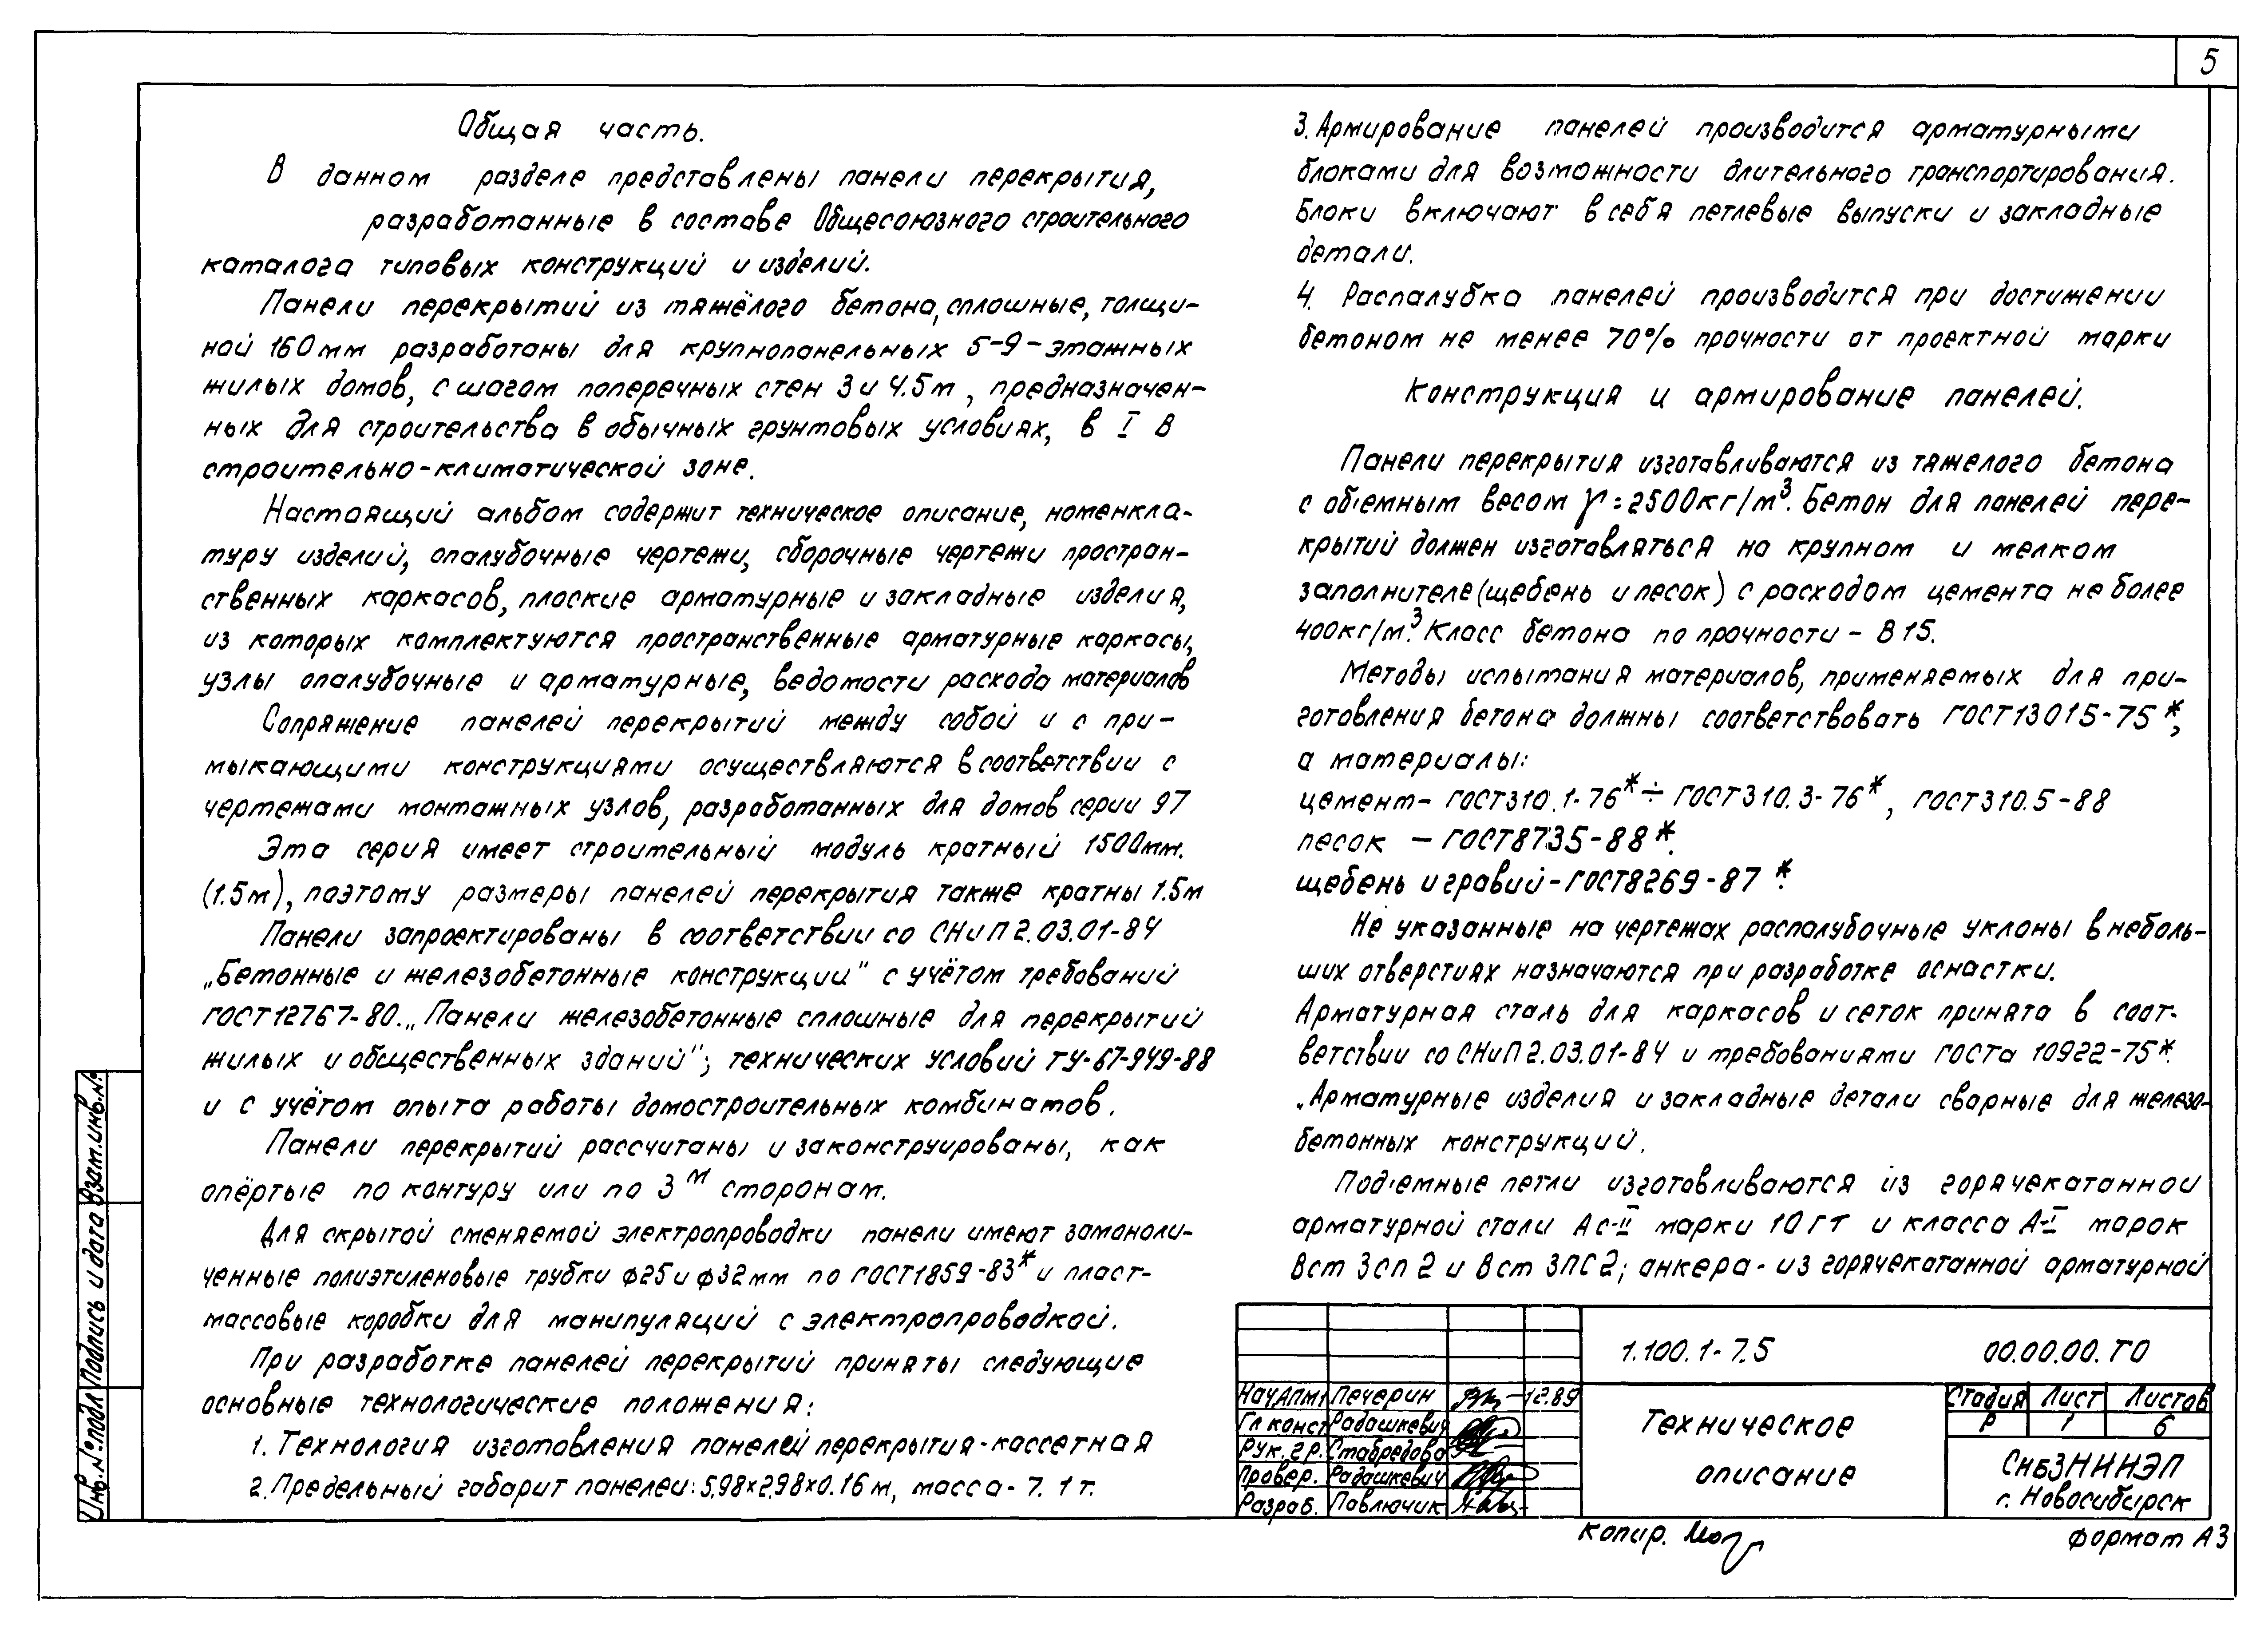 5
Общая часть.
В данном разделе представлены панели перекрытия,
разработанные в составе Общесоюзного строительного
каталога типовых конструкций и изделий.
Панели перекрытий из тяжёлого бетона, сплошные, толщи-
ной 160мм разработаны для крупнопанельных 5-9-этажных
жилых домов, с шагом поперечных стен 3 и 4.5м, предназначен-
ных для строительства в обычных грунтовых условиях, в I В
строительно-климатической зоне.
Настоящий альбом содержит техническое описание, номенкла-
туру изделий, опалубочные чертежи, сборочные чертежи простран-
ственных каркасов, плоские арматурные и закладные изделия,
из которых комплектуются пространственные арматурные каркасы,
узлы опалубочные и арматурные, ведомости расхода материалов
Сопряжение панелей перекрытий между собой и с при-
мыкающими конструкциями осуществляются в соответствии с
чертежами монтажных узлов, разработанных для домов серии 97
Эта серия имеет строительный модуль кратный 1500мм.
(1.5м), поэтому размеры панелей перекрытия также кратны 1.5м
Панели запроектированы в соответствии со СНиП 2.03.01-84
„Бетонные и железобетонные конструкции" с учётом требований
ГОСТ 12767-80. „Панели железобетонные сплошные для перекрытий
жилых и общественных зданий"; технических условий ТУ-67-949-88
и с учётом опыта работы домостроительных комбинатов.
Панели перекрытий рассчитаны и законструированы, как
опёртые по контуру или по 3м сторонам.
Для скрытой сменяемой электропроводки панели имеют замоноли-
ченные полиэтиленовые трубки ф25 и ф32мм по ГОСТ1859-83* и пласт-
массовые коробки для манипуляций с электропроводкой.
При разработке панелей перекрытий приняты следующие
основные технологические положения:
1. Технология изготовления панелей перекрытия-кассетная
2. Предельный габарит панелей: 5.98×2.98×0.16м, масса-7.1т.
3. Армирование панелей производится арматурными
блоками для возможности длительного транспортирования.
Блоки включают в себя петлевые выпуски и закладные
детали.
4. Распалубка панелей производится при достижении
бетоном не менее 70% прочности от проектной марки
Конструкция и армирование панелей.
Панели перекрытия изготавливаются из тяжелого бетона
с объемным весом γ=2500кг/м³. Бетон для панелей пере-
крытий должен изготавляться на крупном и мелком
заполнителе (щебень и песок) с расходом цемента не более
400кг/м³. Класс бетона по прочности - В15.
Методы испытания материалов, применяемых для при-
готовления бетона должны соответствовать ГОСТ13015-75*,
а материалы:
цемент- ГОСТ310.1-76*÷ГОСТ310.3-76*, ГОСТ310.5-88
песок - ГОСТ8735-88*.
щебень и гравий-ГОСТ8269-87*.
Не указанные на чертежах распалубочные уклоны в неболь-
ших отверстиях назначаются при разработке оснастки.
Арматурная сталь для каркасов и сеток принята в соот-
ветствии со СНиП 2.03.01-84 и требованиями ГОСТа 10922-75*.
„Арматурные изделия и закладные детали сварные для железо-
бетонных конструкций.
Подъемные петли изготовливаются из горячекатанной
арматурной стали Ас-II марки 10ГТ и класса А-I марок
Вст 3сп 2 и Вст 3пс 2; анкера - из горячекатанной арматурной
Взам.инв.№
Подпись и дата
Инв.№ подл
1.100.1-7.5
00.00.00.ТО
Нач АПМ1 Печерин 12.89
Гл конст Радашкевич
Рук. гр. Ставредова
Провер. Радашкевич
Разраб. Павлючик
Техническое
описание
Стадия Лист Листов
Р 1 6
СибЗНИИЭП
г. Новосибирск
Копир.
Формат А3